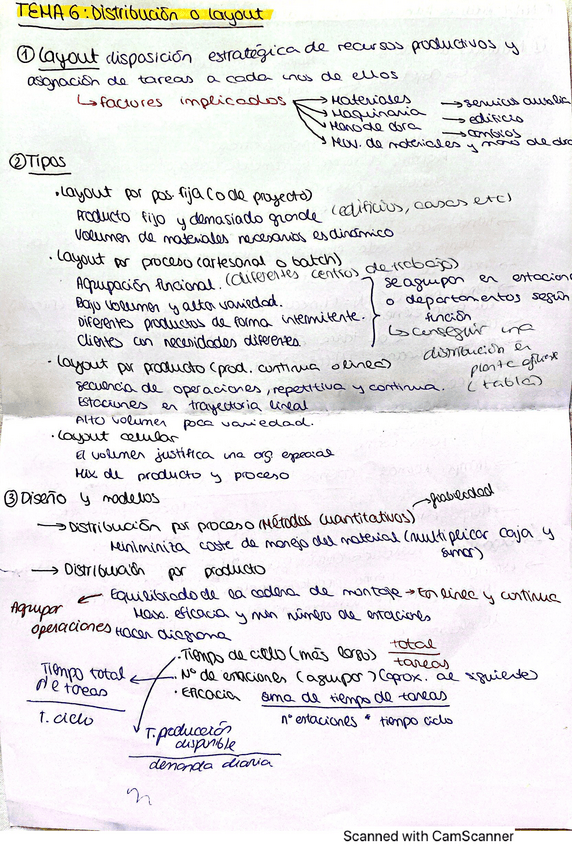 TEMA 6: Distribución o layout
① Layout disposición estratégica de recursos productivos y
asignación de tareas a cada uno de ellos
↳ factores implicados → Materiales → servicios auxilia
→ Maquinaria → edificio
→ Mano de obra → cambios
→ Mov. de materiales y mano de obra
② Tipos
· Layout por pos. fija (o de proyecto)
Producto fijo y demasiado grande (edificios, casas etc)
Volumen de materiales necesarios es dinámico
· Layout por proceso (artesanal o batch)
Agrupación funcional. (diferentes centros de trabajo)
Bajo volumen y alta variedad.
Diferentes productos de forma intermitente.
Clientes con necesidades diferentes
se agrupan en estacion
o departamentos según
función
↳ conseguir una
distribución en
planta
(tabla)
· Layout por producto (prod. continua o línea)
secuencia de operaciones, repetitiva y continua.
Estaciones en trayectoria lineal
Alto volumen poca variedad.
· Layout celular
El volumen justifica una org especial
Mix de producto y proceso
③ Diseño y modelos
→ Distribución por proceso (Métodos cuantitativos)
Miniminita coste de manejo del material (multiplicar caja y
sumar)
→ Distribución por producto
Equilibrado de la cadena de montaje → En línea y continua
Max. eficacia y min número de estaciones
Agrupar
operaciones
Hacer diagrama
· Tiempo de ciclo (más largo) total
tareas
· Nº de estaciones (agrupar) (aprox. al siguiente)
· Eficacia suma de tiempo de tareas
nº estaciones * tiempo ciclo
Tiempo total
de tareas
T. ciclo
T. producción
disponible
demanda diaria
Scanned with CamScanner